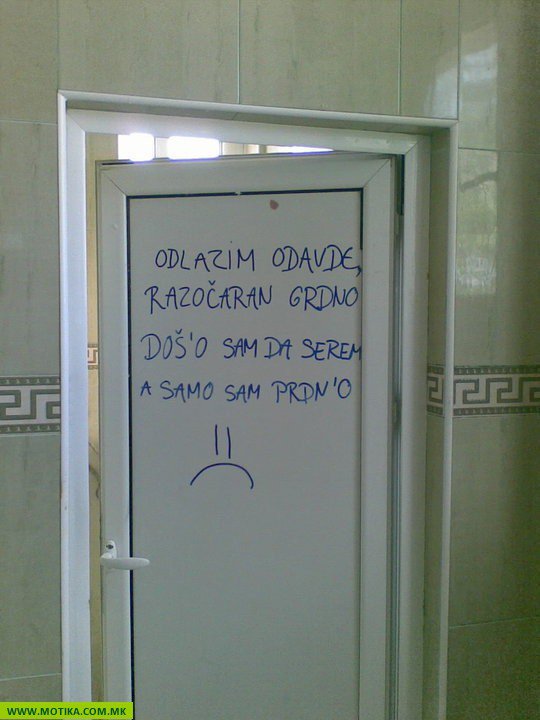 ODLAZIM ODAVDE,
RAZOČARAN GRDNO
DOŠ'O SAM DA SEREM
A SAMO SAM PRDN'O
WWW.MOTIKA.COM.MK